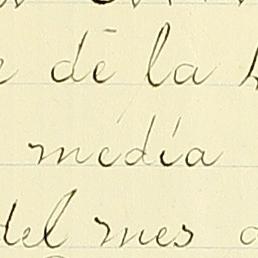 dé la
média
del mes